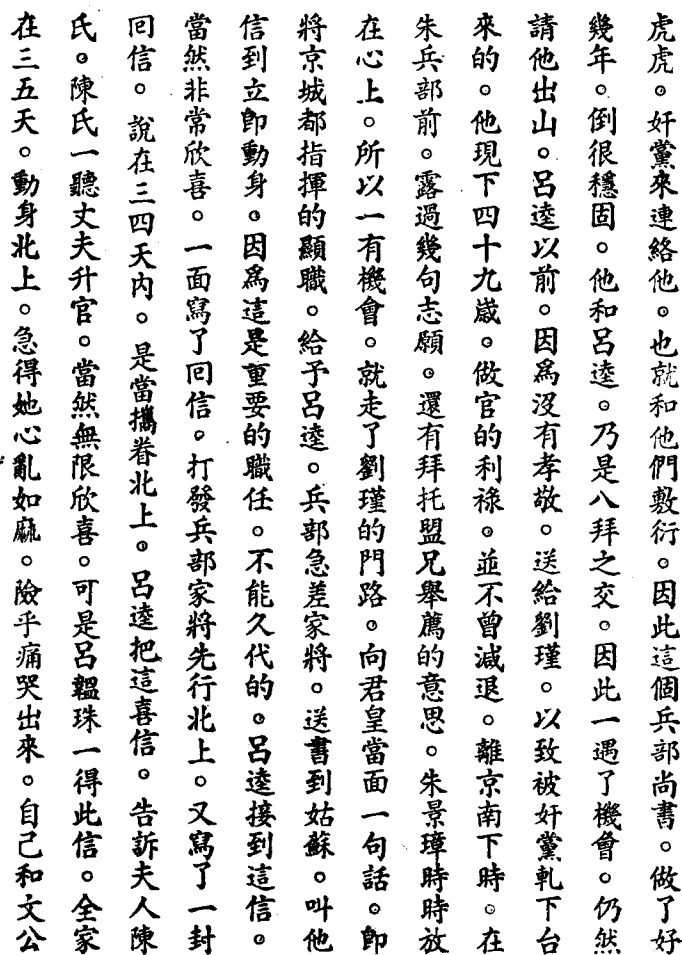 虎虎。奸黨來連絡他。也就和他們敷衍。因此這個兵部尚書。做了好
幾年。倒很穩固。他和呂逵。乃是八拜之交。因此一遇了機會。仍然
請他出山。呂逵以前。因爲沒有孝敬。送給劉瑾。以致被奸黨軋下台
來的。他現下四十九歲。做官的利祿。並不曾減退。離京南下時。在
朱兵部前。露過幾句志願。還有拜托盟兄舉薦的意思。朱景璋時時放
在心上。所以一有機會。就走了劉瑾的門路。向君皇當面一句話。卽
將京城都指揮的顯職。給予呂逵。兵部急差家將。送書到姑蘇。叫他
信到立卽動身。因爲這是重要的職任。不能久代的。呂逵接到這信。
當然非常欣喜。一面寫了回信。打發兵部家將先行北上。又寫了一封
回信。說在三四天內。是當攜眷北上。呂逵把這喜信。告訴夫人陳
氏。陳氏一聽丈夫升官。當然無限欣喜。可是呂韞珠一得此信。全家
在三五天。動身北上。急得她心亂如麻。險乎痛哭出來。自己和文公